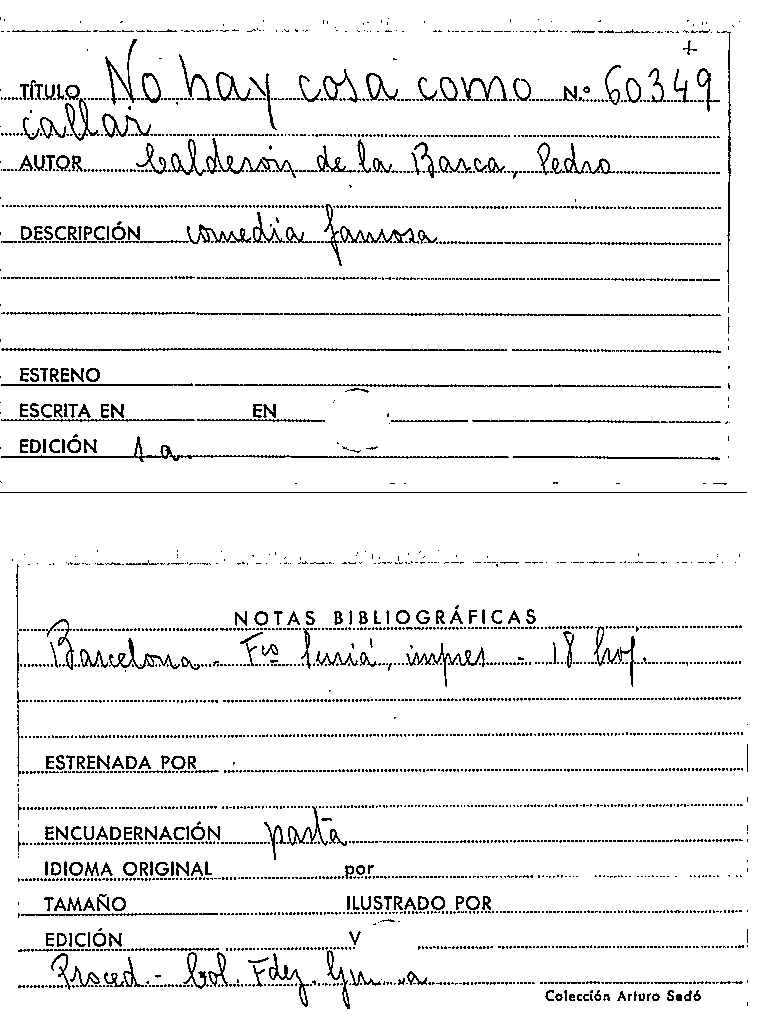 +
TÍTULO No hay cosa como N.º 60349
callar
AUTOR Calderón de la Barca, Pedro
DESCRIPCIÓN comedia famosa
ESTRENO
ESCRITA EN EN
EDICIÓN
NOTAS BIBLIOGRÁFICAS
Barcelona - Fco Suriá, impres - 18 hoj.
ESTRENADA POR
ENCUADERNACIÓN pasta
IDIOMA ORIGINAL por
TAMAÑO ILUSTRADO POR
EDICIÓN V
Proced.- Col. Fdez.
Colección Arturo Sedó